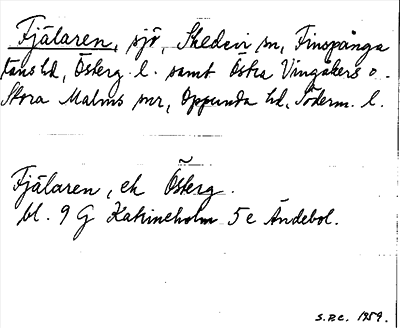 Fjälaren, sjö, Skedevi sn, Finspånga
läns hd, Österg. l. samt Östra Vingåkers o.
Stora Malms snr, Oppunda hd, Söderm. l.
Fjälaren, ek Österg.
bl. 9 G Katrineholm 5 e Ändebol.
S.P.C. 1959.